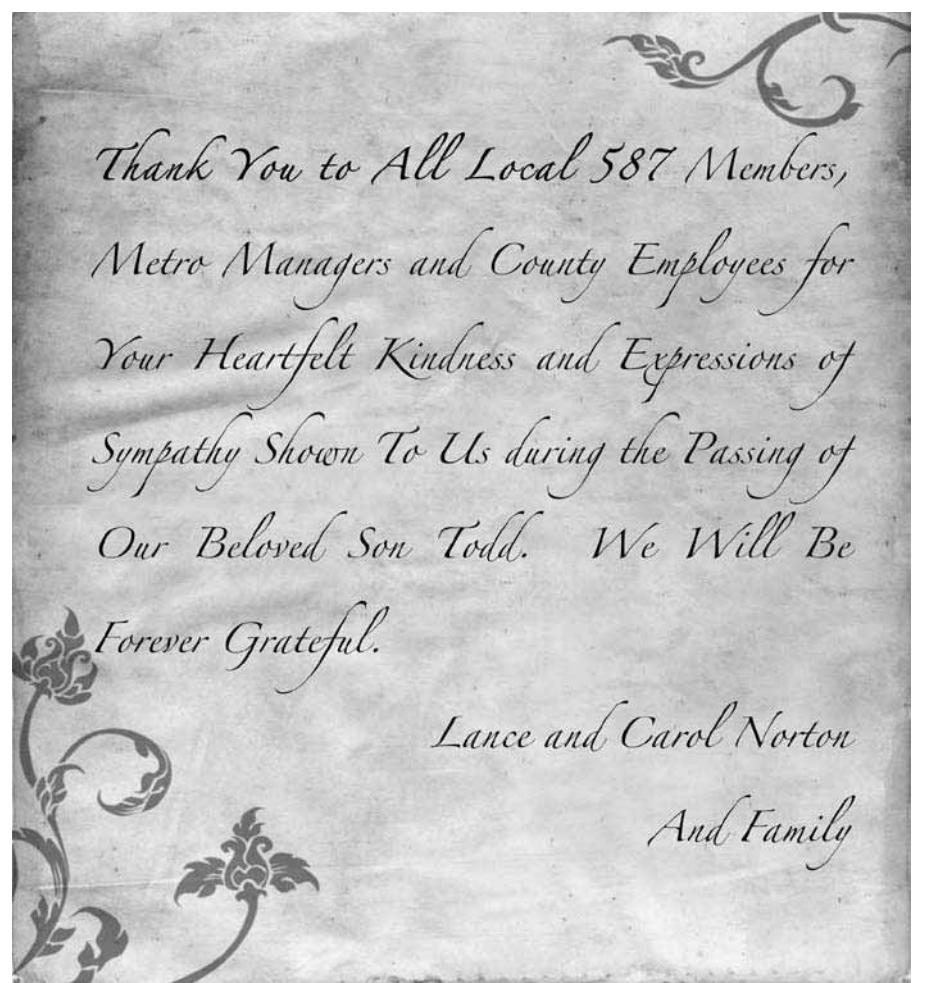 Thank You to All Local 587 Members,
Metro Managers and County Employees for
Your Heartfelt Kindness and Expressions of
Sympathy Shown To Us during the Passing of
Our Beloved Son Todd. We Will Be
Forever Grateful.
Lance and Carol Norton
And Family